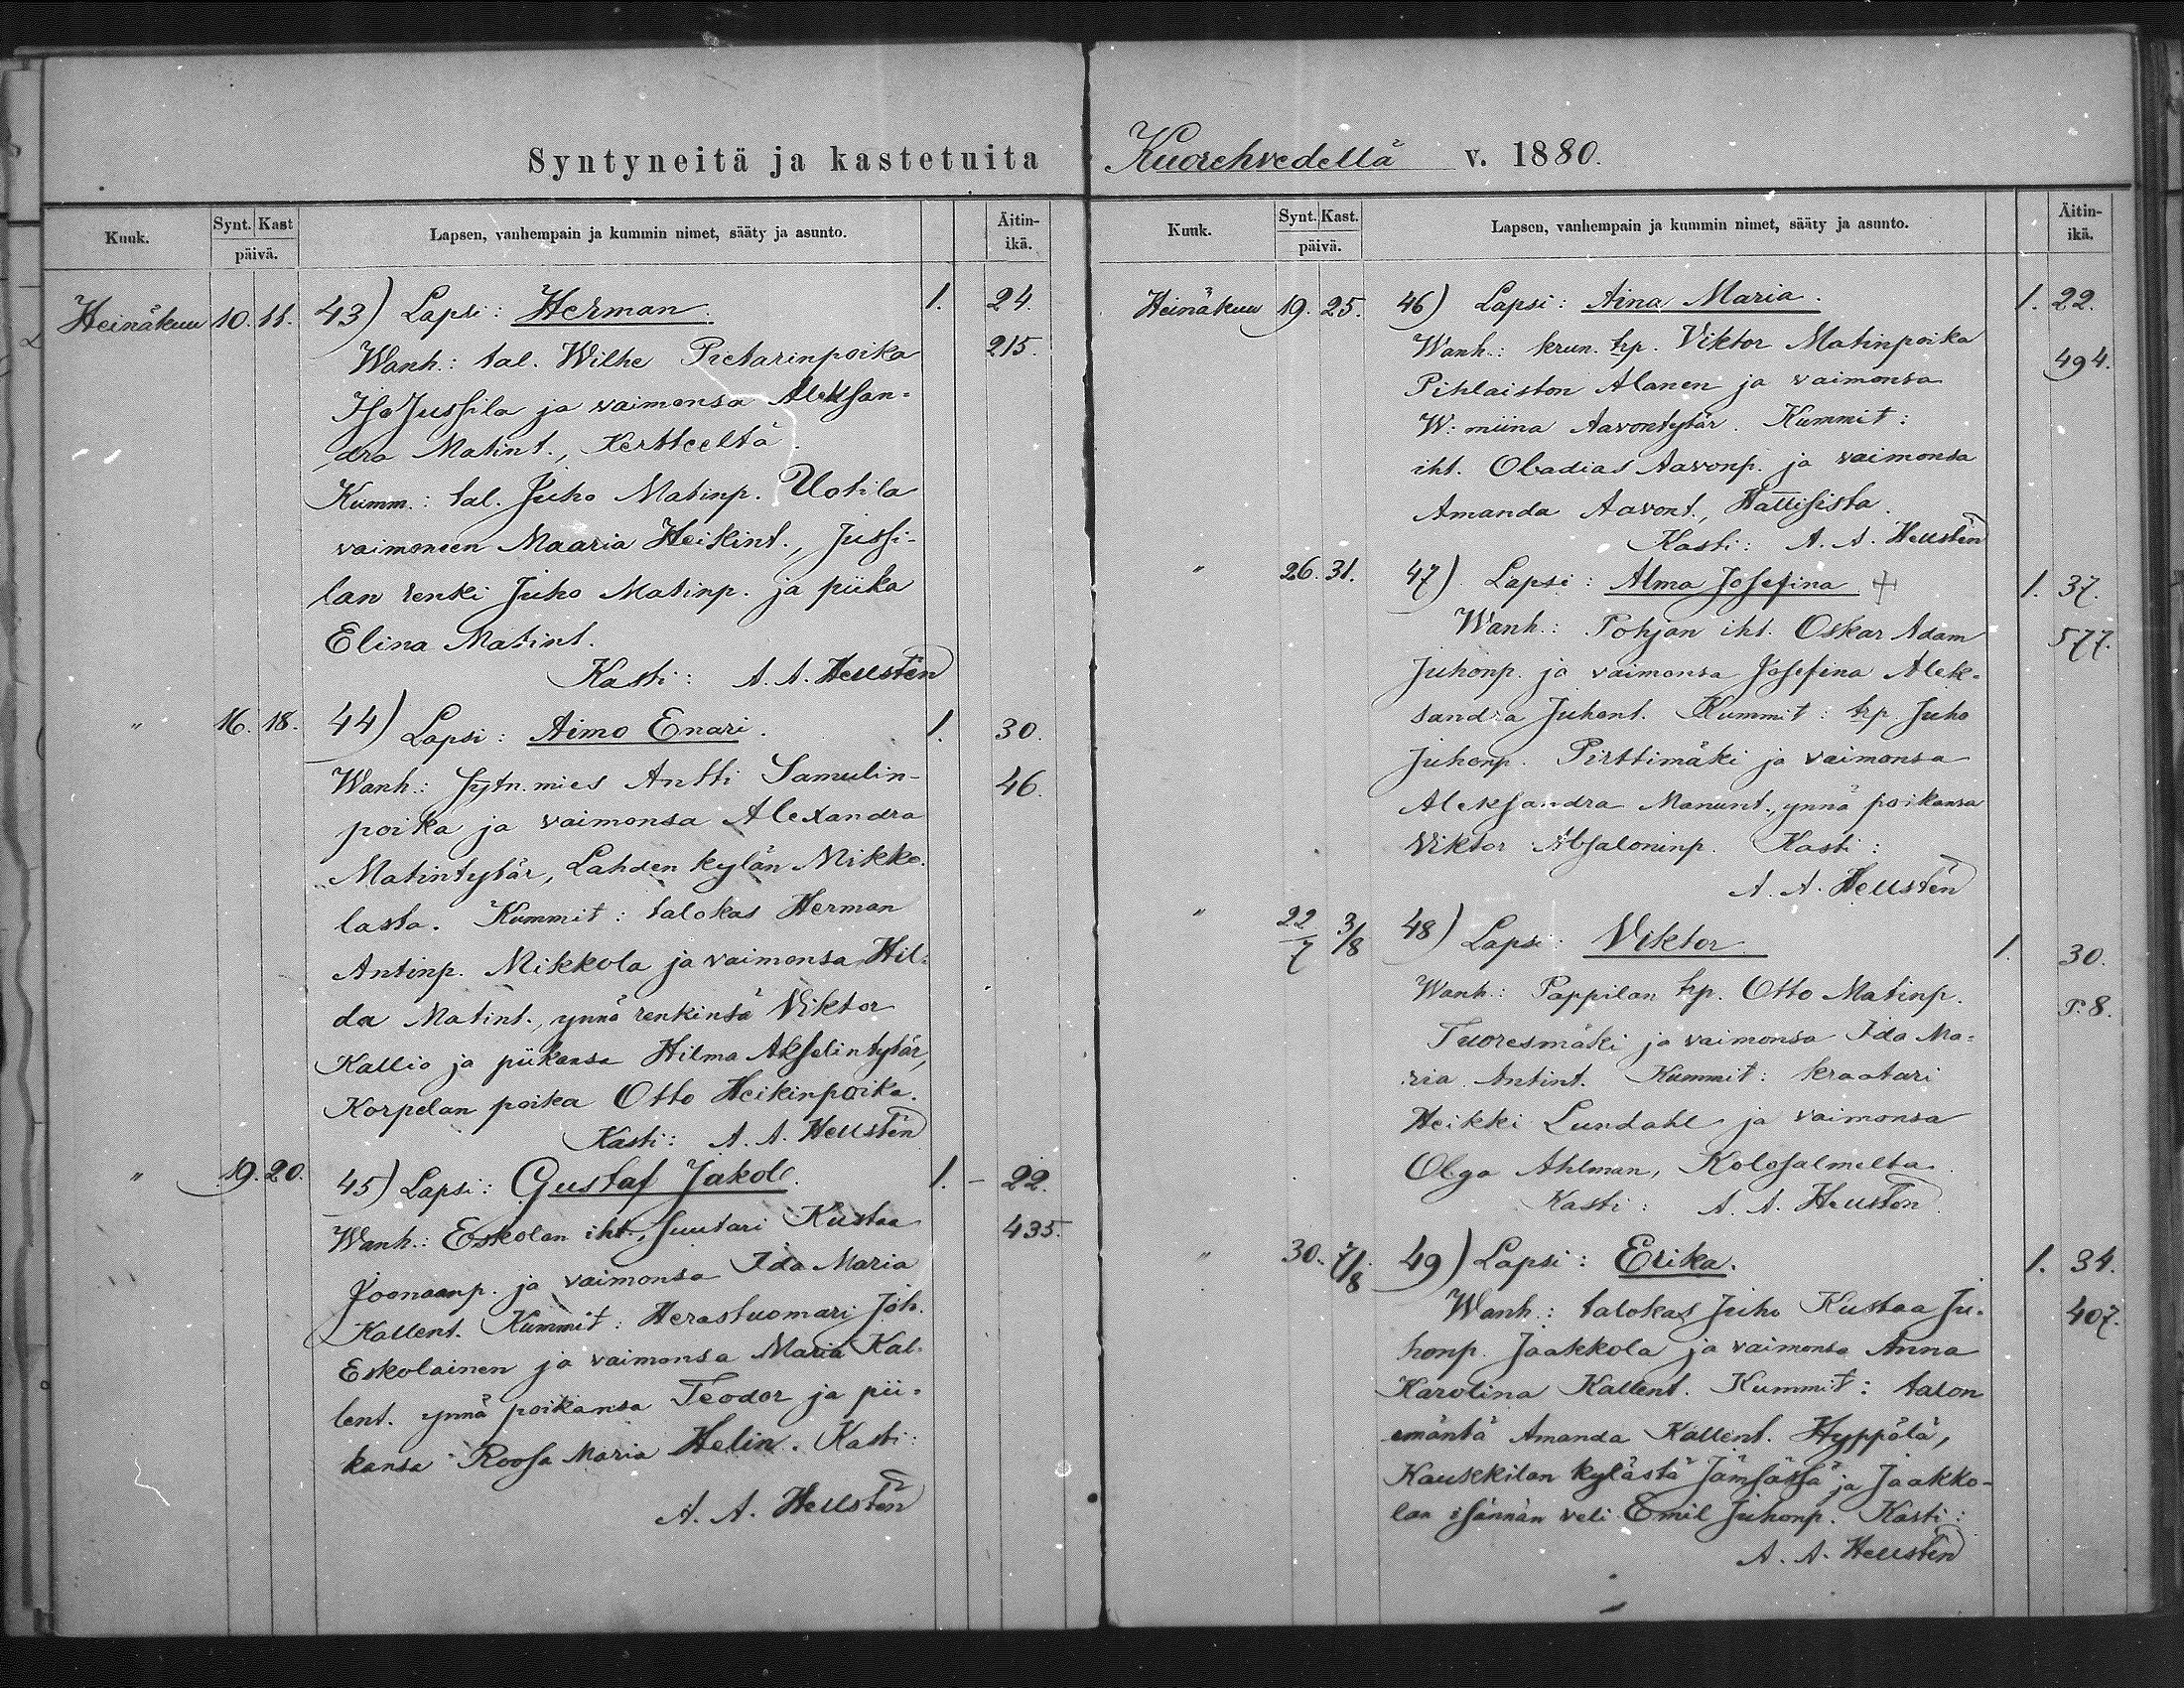 Syntyneitä ja kastetuita
Kuuk.
Synt. Kast
päivä.
Lapsen, vanhempain ja kummin nimet, sääty ja asunto.
Äitin-
ikä.
Heinäkuu 10. 11. 43) Lapsi: Herman. 1. 24.
Wanh.: tal. Wilhe Pietarinpoika 215.
Iso Jussila ja vaimonsa Aleksan-
dra Matint., Kertteeltä.
Kumm.: tal. Juho Matinp. Uotila
vaimoneen Maaria Heikint., Jussi-
lan renki Juho Matinp. ja piika
Elina Matint.
Kasti: A. A. Hellstén
" 16. 18. 44) Lapsi: Aimo Enari. 1. 30.
Wanh.: sytn. mies Antti Samulin- 46.
poika ja vaimonsa Alexandra
Matintytär, Lahden kylän Mikko-
lasta. Kummit: talokas Herman
Antinp. Mikkola ja vaimonsa Hil-
da Matint., ynnä renkinsä Viktor
Kallio ja piikansa Hilma Akselintytär,
Korpelan poika Otto Heikinpoika.
Kasti: A. A. Hellstén
" 19. 20. 45) Lapsi: Gustaf Jakob. 1. - 22.
Wanh.: Eskolan iht., suutari Kustaa 435.
Joonaanp. ja vaimonsa Ida Maria
Kallent. Kummit: Herastuomari Joh.
Eskolainen ja vaimonsa Maria Kal-
lent. ynnä poikansa Teodor ja pii-
kansa Roosa Maria Helin. Kasti:
A. A. Hellstén
Kuorehvedellä v. 1880.
Kuuk.
Synt. Kast.
päivä.
Lapsen, vanhempain ja kummin nimet, sääty ja asunto.
Äitin-
ikä.
Heinäkuu 19. 25. 46) Lapsi: Aina Maria. 1. 22.
Wanh.: krun. trp. Viktor Matinpoika 494.
Pihlaiston Alanen ja vaimonsa
W:miina Aavontytär. Kummit:
iht. Obadias Aavonp. ja vaimonsa
Amanda Aavont., Hallisista.
Kasti: A. A. Hellstén
" 26. 31. 47) Lapsi: Alma Josefina + 1. 37.
Wanh.: Pohjan iht. Oskar Adam 577.
Juhonp. ja vaimonsa Josefina Alek-
sandra Juhont. Kummit: trp. Juho
Juhonp. Pirttimäki ja vaimonsa
Aleksandra Manunt., ynnä poikansa
Viktor Absaloninp. Kasti:
A. A. Hellstén
" 22/7 3/8 48) Lapsi: Viktor 1. 30.
Wanh.: Pappilan trp. Otto Matinp. P. 8.
Tuoresmäki ja vaimonsa Ida Ma-
ria Antint. Kummit: kraatari
Heikki Lundahl ja vaimonsa
Olga Ahlman, Kolosalmelta.
Kasti: A. A. Hellstén
" 30. 7/8 49) Lapsi: Erika. 1. 34.
Wanh.: talokas Juho Kustaa Ju- 407.
honp. Jaakkola ja vaimonsa Anna
Karolina Kallent. Kummit: talon
emäntä Amanda Kallent. Hyppölä,
Kaukkilan kylästä Jämsässä ja Jaakko-
lan isännän veli Emil Juhonp. Kasti:
A. A. Hellstén